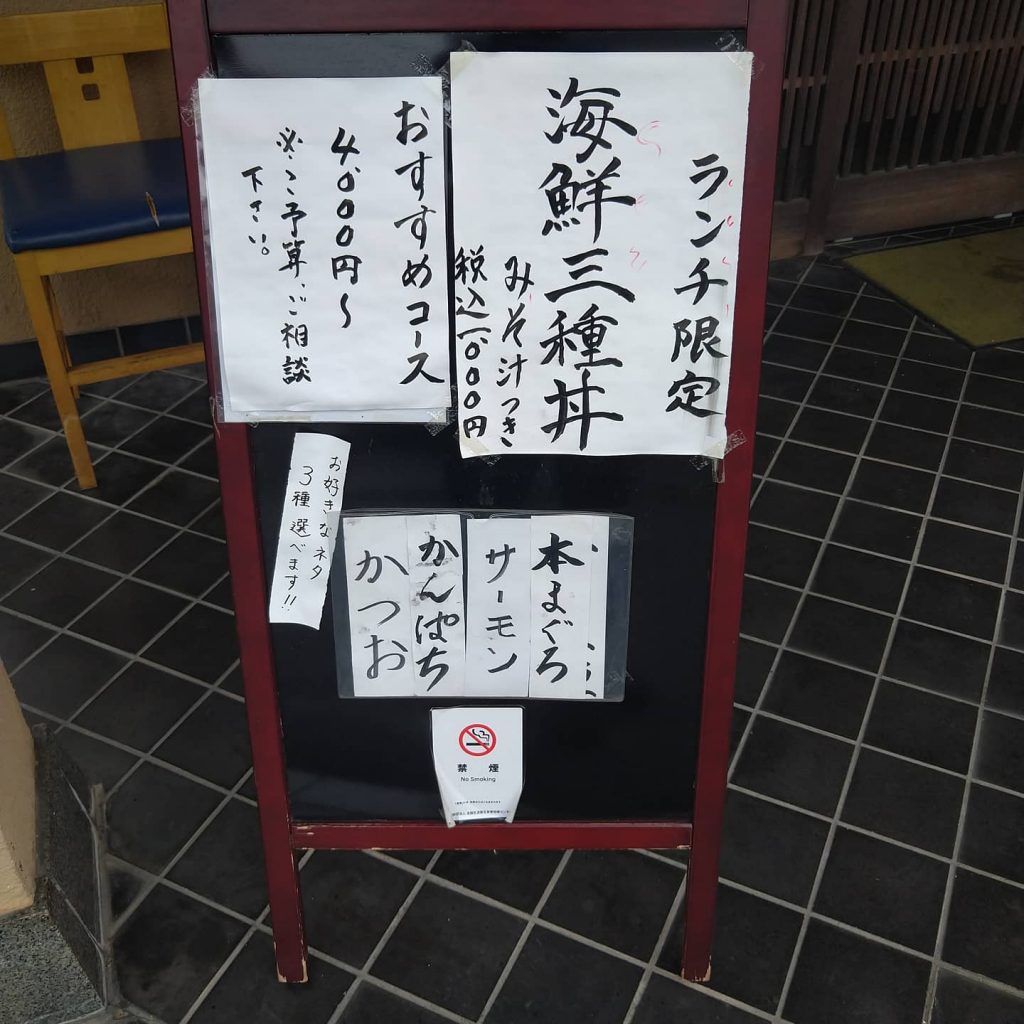 ランチ限定
海鮮三種丼
みそ汁つき
税込一、〇〇〇円
おすすめコース
4、000円〜
※ご予算、ご相談
下さい。
お好きなネタ
3種選べます!!
本まぐろ
サーモン
かんぱち
かつお
禁煙
No Smoking